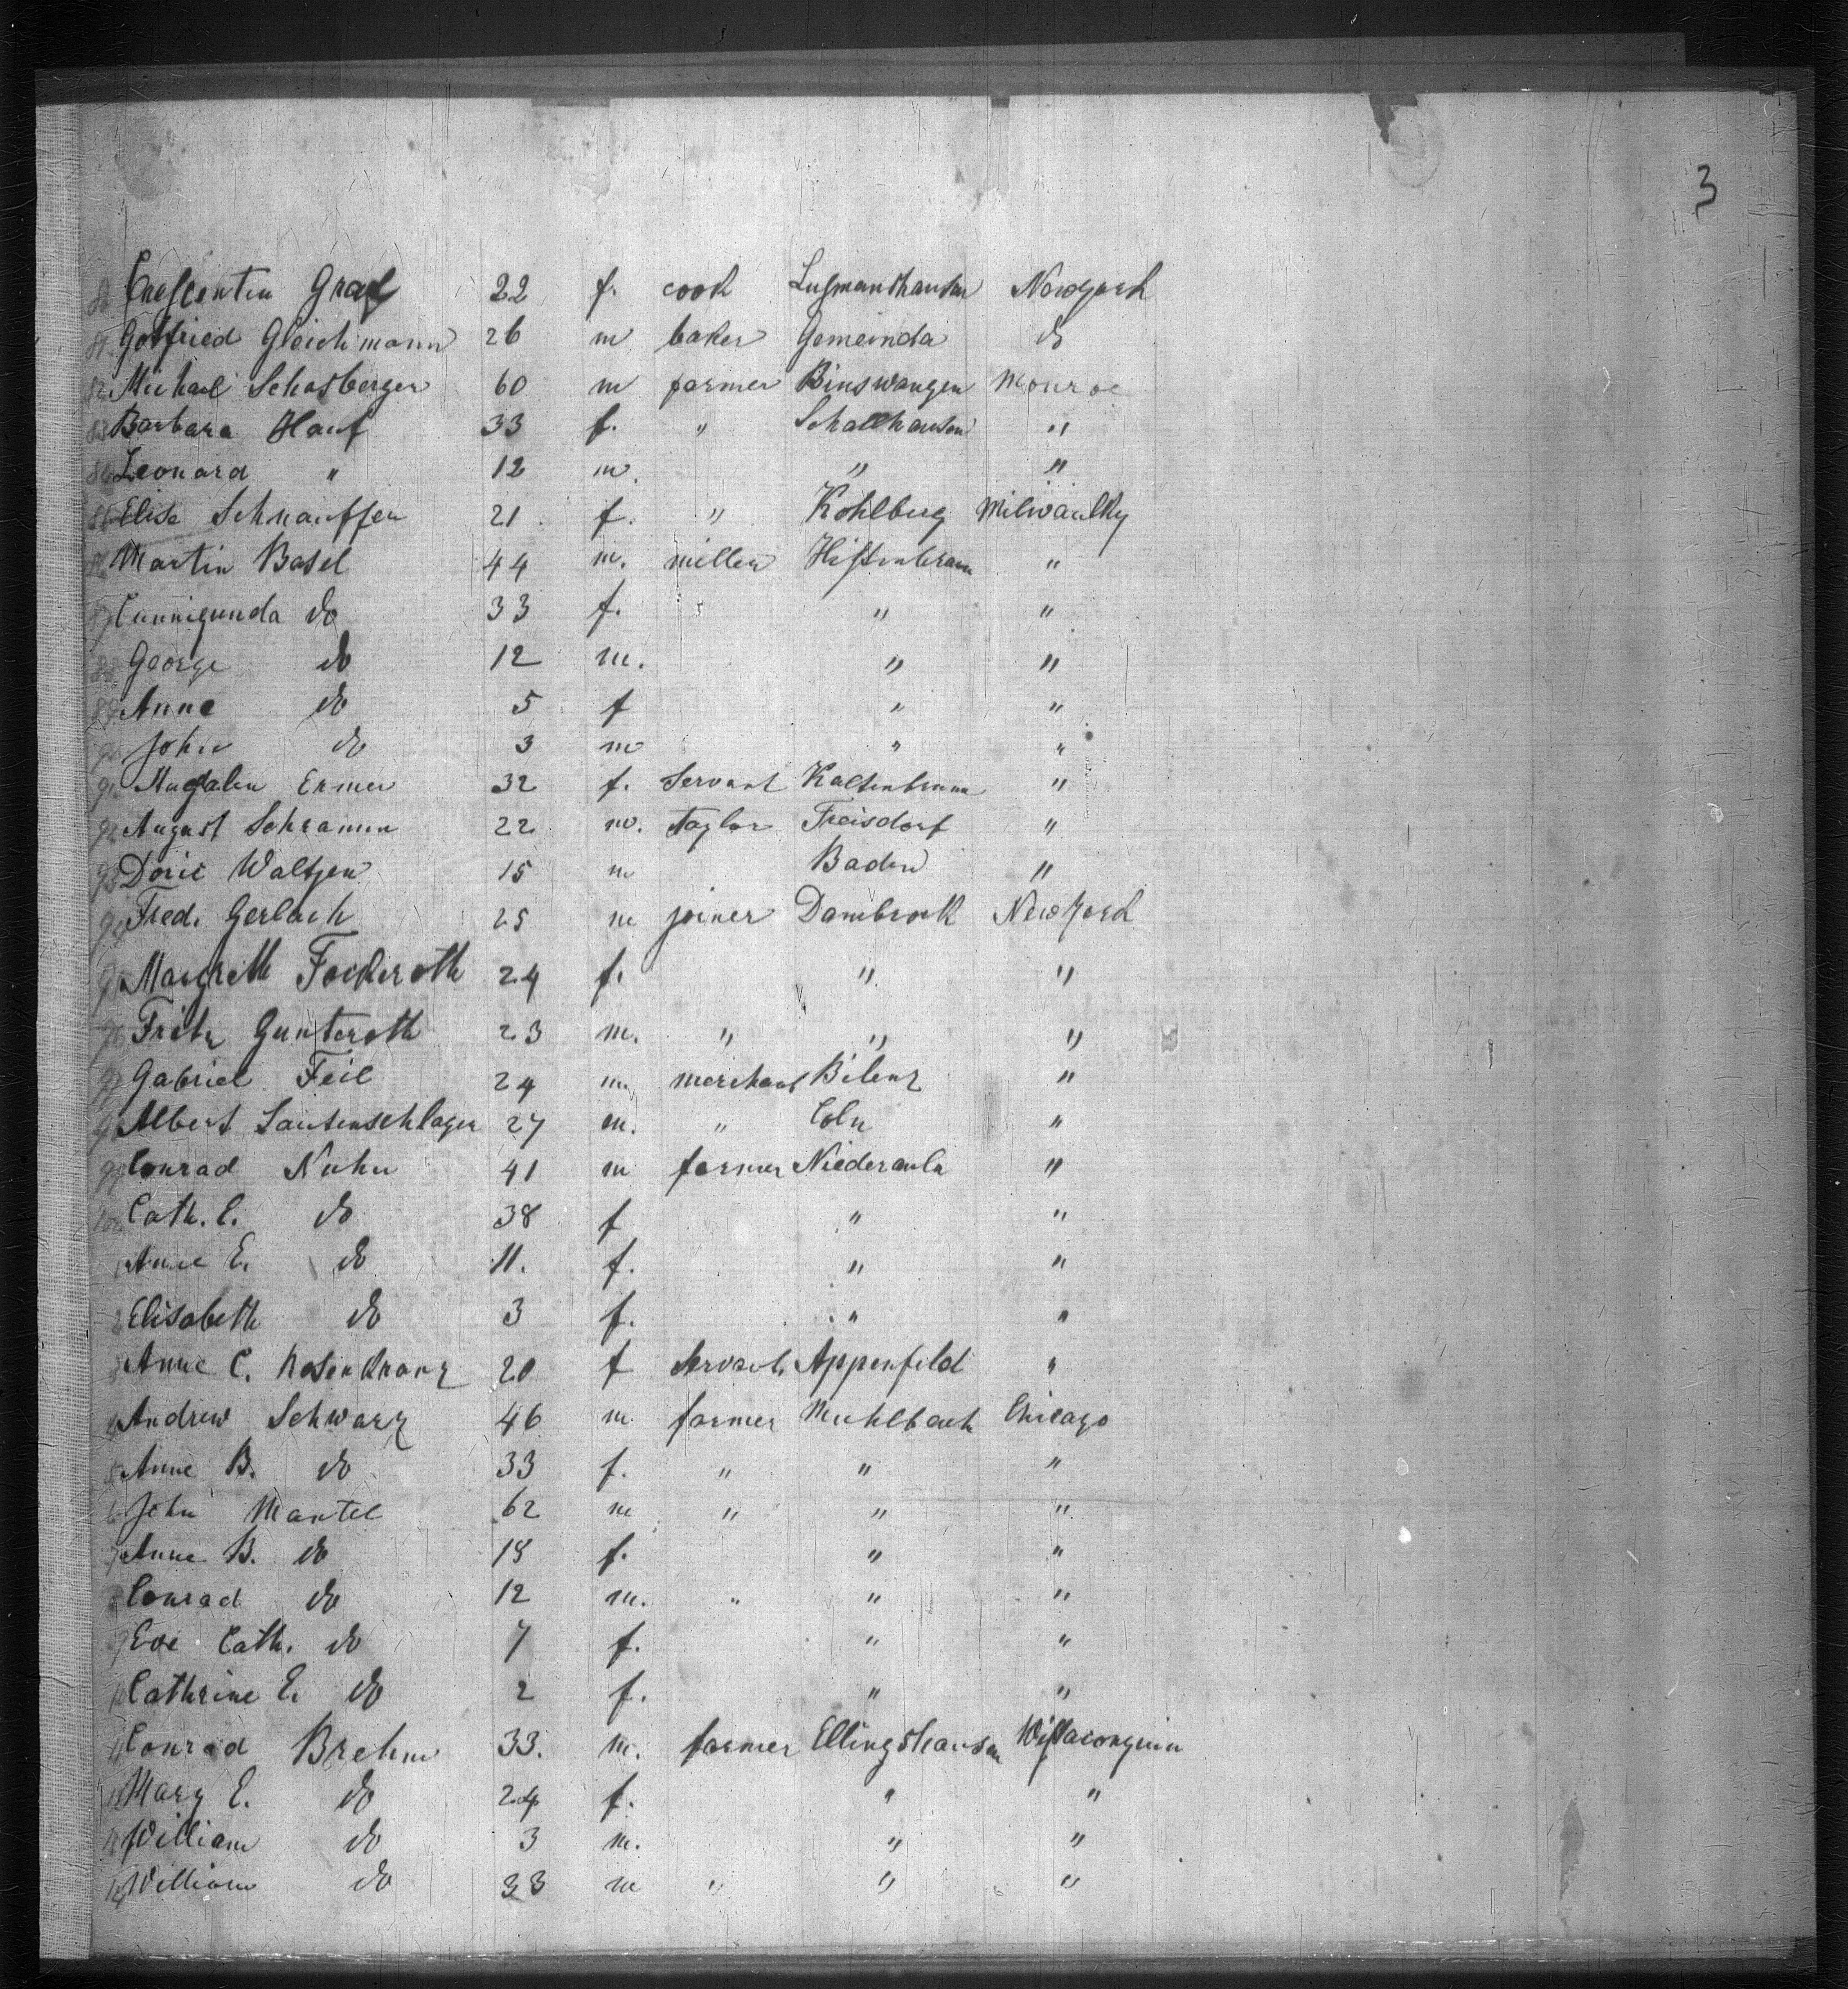 3
80 Crescentia Graf 22 f. cook Lusmanshausen Newyork
81 Gotfried Gleichmann 26 m baker Gemeinda do
82 Michael Schasberger 60 m farmer Binswangen Monroe
83 Barbara Hauf 33 f. " Schallhausen "
84 Leonard " 12 m. " "
85 Elise Schnauffer 21 f. " Kohlberg Milwaulky
86 Martin Basel 44 m. miller "
87 Cunnigunda do 33 f. " "
88 George do 12 m. " "
89 Anne do 5 f " "
90 John do 3 m " "
91 Magdalen Ermer 32 f. Servant Kaltenbrunn "
92 August Schramm 22 m. taylor Freisdorf "
93 Doric Waltzen 15 m Baden "
94 Fred. Gerlach 25 m joiner Dambrock New York
95 Margreth Fockeroth 24 f. " "
96 Fritz Gunteroth 23 m. " " "
97 Gabriel Feil 24 m. merchant Bilenz "
98 Albert Lautenschlager 27 m. " Coln "
99 Conrad Nuhn 41 m farmer Niederaula "
100 Cath. E. do 38 f " "
1 Anne E. do 11. f. " "
2 Elisabeth do 3 f. " "
3 Anne C. Rosenkranz 20 f Servant Appenfeld "
4 Andrew Schwarz 46 m. farmer Muhlbach Chicago
5 Anne B. do 33 f. " " "
6 John Mantel 62 m " " "
7 Anne B. do 18 f. " "
8 Conrad do 12 m. " " "
9 Eve Cath. do 7 f. " "
10 Cathrine E. do 2 f. " "
11 Conrad Brehm 33. m. farmer Ellingshausen Wissaconguin
12 Mary E. do 24 f. " "
13 William do 3 m. " "
14 William do 33 m " " "